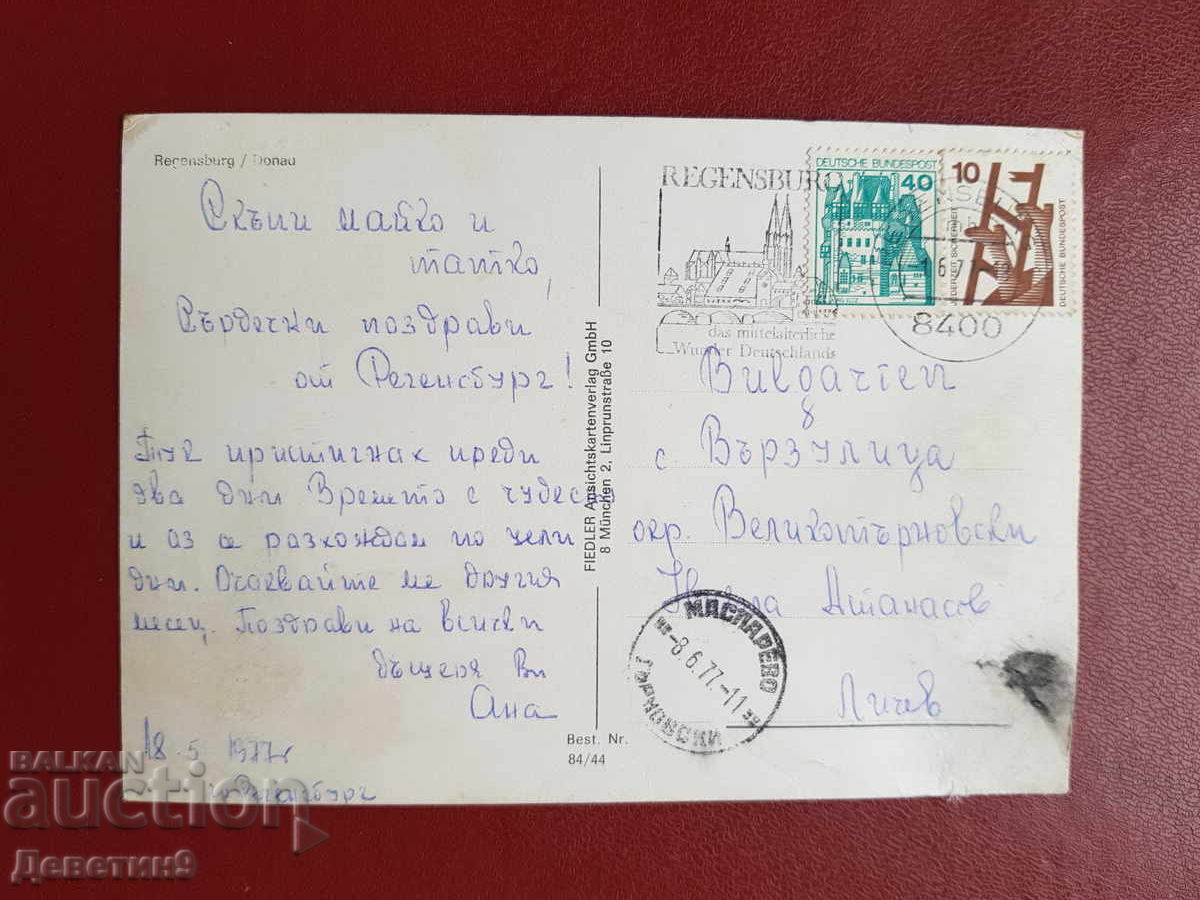 Regensburg / Donau
Скъпи майко и
татко,
Сърдечни поздрави
от Регенсбург!
Тук пристигнах преди
два дни Времето е чудесно
и аз се разхождам по цели
дни. Очаквайте ме другия
месец. Поздрави на всички
дъщеря Ви
Ана
18 5 1977г
Регенсбург
FIEDLER Ansichtskartenverlag GmbH
8 München 2, Linprunstraße 10
Best. Nr.
84/44
REGENSBURG
das mittelalterliche
Wunder Deutschlands
DEUTSCHE BUNDESPOST
40
10
JEDERZEIT SICHERHEIT
DEUTSCHE BUNDESPOST
8400
с. Вързулица
окр. Великотърновски
Никола Атанасов
Личев
МАСЛАРЕВО
-8.6.77.-11
ТЪРНОВСКИ
BALKAN
auction
Деветин9